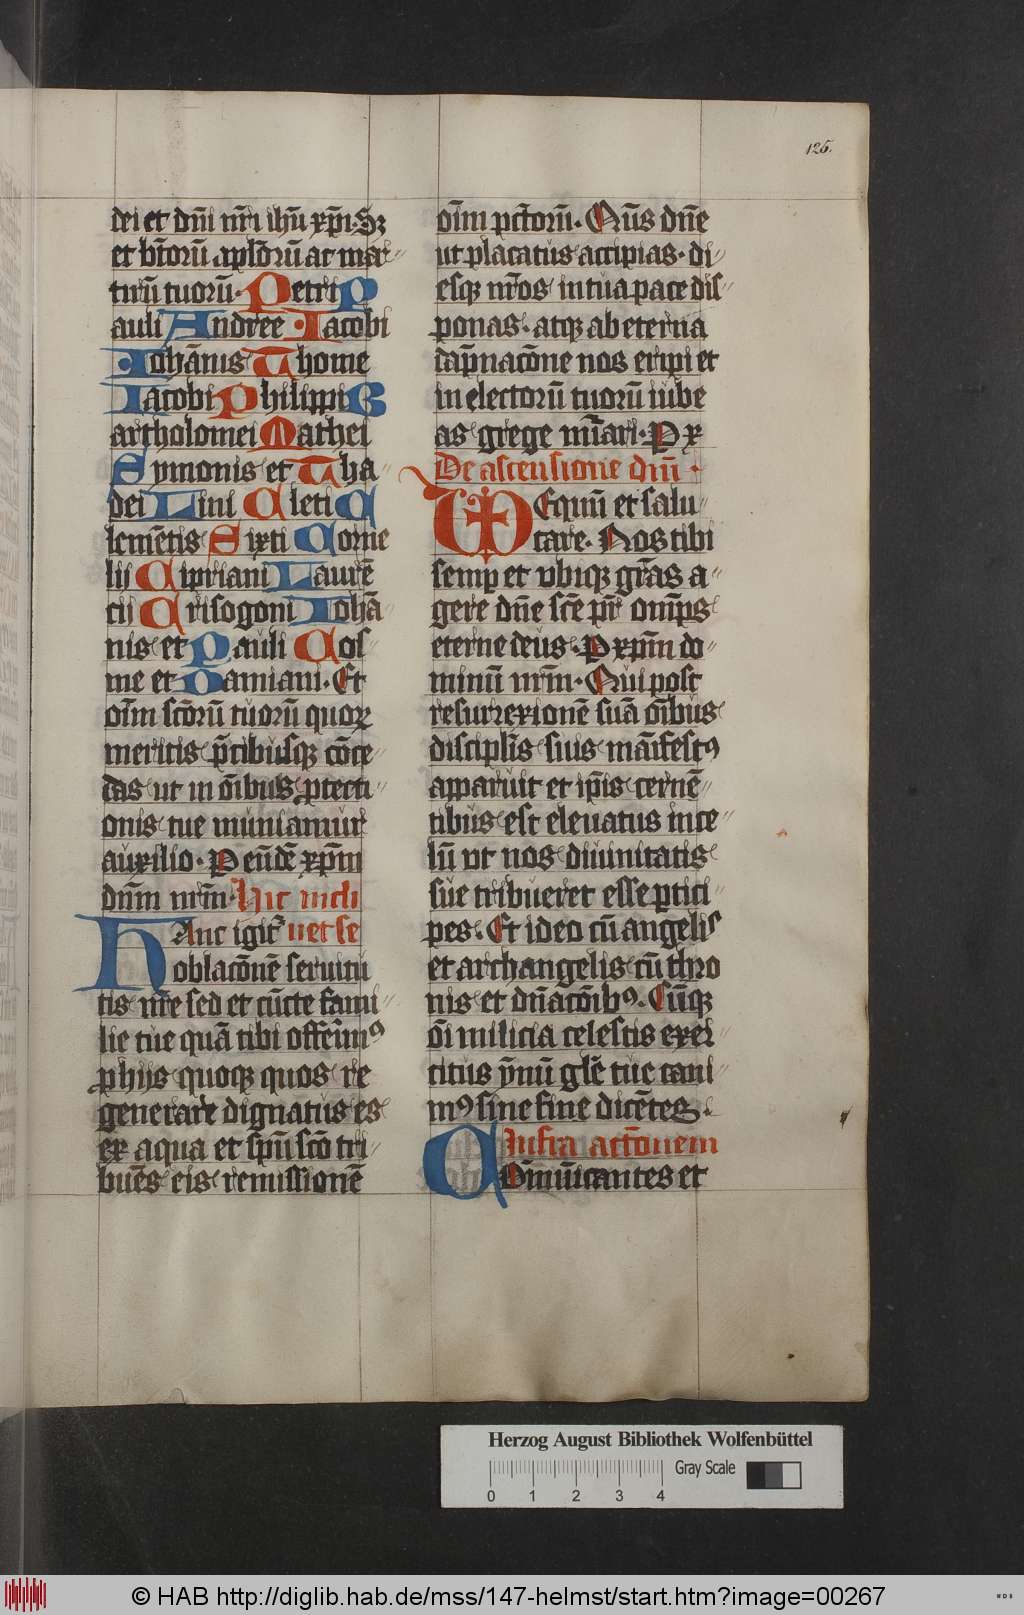 125.
dei et dn̄i nr̄i ihū xp̄i. Sꝫ
et bt̄orū apl̄orū ac mar〃
tirū tuorū. Petri P
auli Andree . Iacobi
Iohānis Thome
Iacobi Philippi B
artholomei Mathei
Symonis et Tha
dei Lini Cleti C
lemētis Sixti Corne
lij Cipriani Laurē
cij Crisogoni Iohā〃
nis et Pauli Cos〃
me et Damiani. Et
oīm sc̄orū tuorū quoꝝ
meritis p̄cibusqꝫ cōce〃
das ut in oībus ꝓtecti〃
onis tue muniamur
auxilio. P eūdē xp̄m
dn̄m nr̄m. Hic incli
Hanc igit᷑ net se
oblacōnē seruitu
tis nr̄e sed et cūcte fami〃
lie tue quā tibi offerimꝰ
ꝓ hijs quoqꝫ quos re
generare dignatus es
ex aqua et sp̄u sc̄o tri〃
buēs eis remissionē
oīm pc̄torū. Q̄us dn̄e
ut placatus accipias. di〃
esqꝫ nr̄os in tua pace dis〃
ponas. atqꝫ ab eterna
dāpnacōne nos eripi et
in electorū tuorū iube
as grege nūari. P x
De ascensione dn̄i .
VEre dignū et salu〃
tare. Nos tibi
semp et ubiqꝫ gr̄as a〃
gere dn̄e sc̄e pr̄ omīps
eterne deus. P xp̄m do〃
minū nr̄m. Qui post
resurrexionē suā oībus
discipl̄is suis māifestꝰ
apparuit et ip̄is cernē〃
tibus est eleuatus in ce〃
lū ut nos diuinitatis
sue tribueret esse ꝑtici〃
pes. Et ideo cū angelis
et archangelis cū thro
nis et dn̄acōibꝰ. Cūqꝫ
oī milicia celestis exer〃
citus ymnū gl̄e tue cani〃
mꝰ sine fine dicētes.
Infra actōnem
Cōmūicantes et
Herzog August Bibliothek Wolfenbüttel
Gray Scale
0 1 2 3 4
© HAB http://diglib.hab.de/mss/147-helmst/start.htm?image=00267